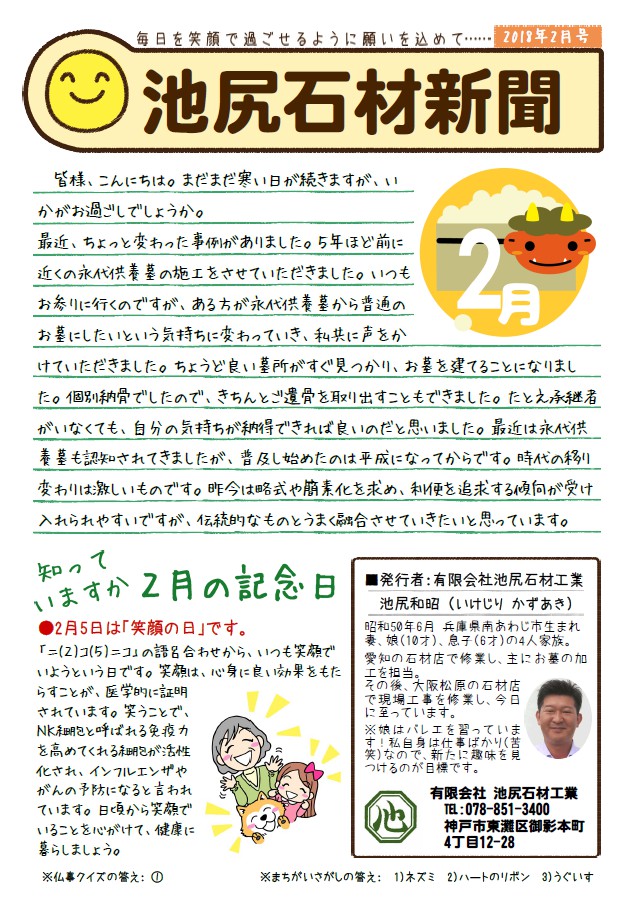 毎日を笑顔で過ごせるように願いを込めて……
2018年2月号
池尻石材新聞
皆様、こんにちは。まだまだ寒い日が続きますが、い
かがお過ごしでしょうか。
最近、ちょっと変わった事例がありました。5年ほど前に
近くの永代供養墓の施工をさせていただきました。いつも
お参りに行くのですが、ある方が永代供養墓から普通の
お墓にしたいという気持ちに変わっていき、私共に声をか
けていただきました。ちょうど良い墓所がすぐ見つかり、お墓を建てることになりまし
た。個別納骨でしたので、きちんとご遺骨を取り出すこともできました。たとえ承継者
がいなくても、自分の気持ちが納得できれば良いのだと思いました。最近は永代供
養墓も認知されてきましたが、普及し始めたのは平成になってからです。時代の移り
変わりは激しいものです。昨今は略式や簡素化を求め、利便を追求する傾向が受け
入れられやすいですが、伝統的なものとうまく融合させていきたいと思っています。
2月
知って
いますか
2月の記念日
●2月5日は「笑顔の日」です。
「ニ(2)コ(5)ニコ」の語呂合わせから、いつも笑顔で
いようという日です。笑顔は、心身に良い効果をもた
らすことが、医学的に証明
されています。笑うことで、
NK細胞と呼ばれる免疫力
を高めてくれる細胞が活性
化され、インフルエンザや
がんの予防になると言われ
ています。日頃から笑顔で
いることを心がけて、健康に
暮らしましょう。
■発行者:有限会社池尻石材工業
池尻和昭（いけじり かずあき）
昭和50年6月 兵庫県南あわじ市生まれ
妻、娘(10才)、息子(6才)の4人家族。
愛知の石材店で修業し、主にお墓の加
工を担当。
その後、大阪松原の石材店
で現場工事を修業し、今日
に至っています。
※娘はバレエを習っていま
す！私自身は仕事ばかり(苦
笑)なので、新たに趣味を見
つけるのが目標です。
池
有限会社 池尻石材工業
TEL:078-851-3400
神戸市東灘区御影本町
4丁目12-28
※仏事クイズの答え: ①
※まちがいさがしの答え: 1)ネズミ 2)ハートのリボン 3)うぐいす